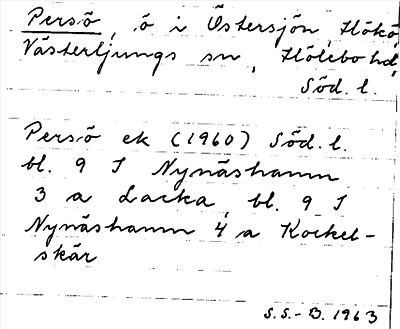 Persö, ö i Östersjön, Hökö,
Västerljungs sn, Hölebo hd,
Söd. l.
Persö ek (1960) Söd. l.
bl. 9 I Nynäshamn
3 a Lacka, bl. 9 I
Nynäshamn 4 a Kockel-
skär
S.S.-B. 1963